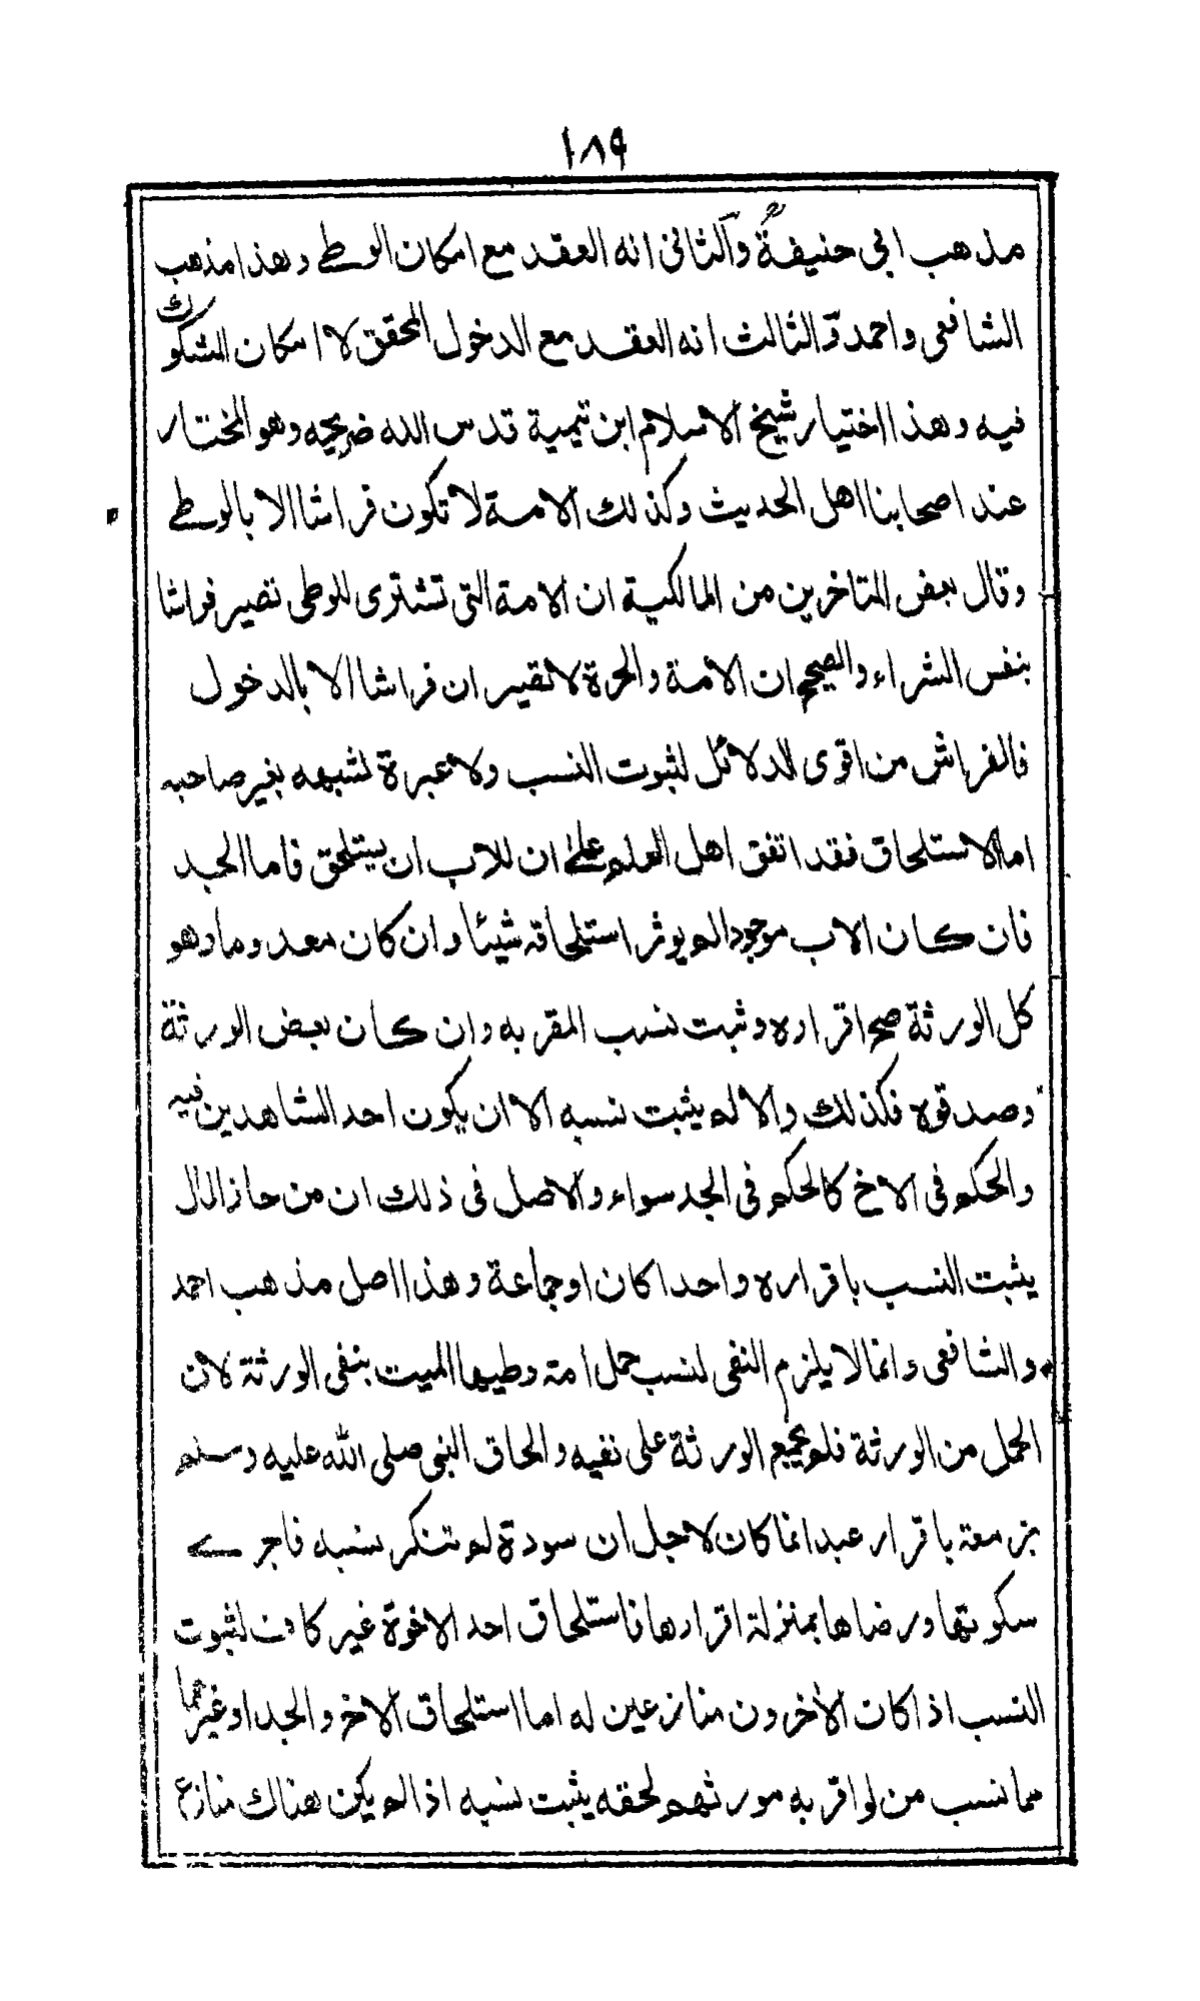 ١٨٩
مذهب ابي حنيفةؒ والثانى انه العقد مع امكان الوطے وهذا مذهب
الشافعى واحمد والثالث انه العقد مع الدخول المحقق لا امكان المشكوك
فيه وهذا اختيار شيخ الاسلام ابن تيمية قدس الله ضريحه وهو المختار
عند اصحابنا اهل الحديث وكذلك الامة لا تكون فراشا الا بالوطے
وقال بعض المتاخرين من المالكية ان الامة التى تشترى للوطى تصير فراشا
بنفس الشراء والصحيح ان الأمة والحرة لا تصيران فراشا الا بالدخول
فالفراش من اقوى الدلائل لثبوت النسب ولا عبرة لشبهه بغير صاحبه
اما الاستلحاق فقد اتفق اهل العلم علىٰ ان للاب ان يستلحق فاما الجد
فان كان الاب موجودا لم يوثر استلحاقه شيئا وان كان معدوما وهو
كل الورثة صح اقراره وثبت نسب المقر به وان كان بعض الورثة
وصدقوه فكذلك والا لم يثبت نسبه الا ان يكون احد الشاهدين فيه
والحكم فى الاخ كالحكم فى الجد سواء والاصل فى ذلك ان من حاز المال
يثبت النسب باقراره واحدا كان اوجماعة وهذا اصل مذهب احمد
والشافعى وانما لا يلزم النفى لنسب حمل أمة وطيها الميت بنفى الورثة لان
الحمل من الورثة فلم يجمع الورثة على نفيه والحاق النبى صلى الله عليه وسلم
بزمعة باقرار عبد انما كان لاجل ان سودة لم تنكر نسبه فاجرے
سكوتها ورضاها بمنزلة اقرارها فاستلحاق احد الاخوة غير كاف لثبوت
النسب اذا كان الأخرون منازعين له اما استلحاق الاخ والجد اوغيرهما
مما نسب من لواقر به مورثهم لحقه يثبت نسبه اذا لم يكن هناك منازع